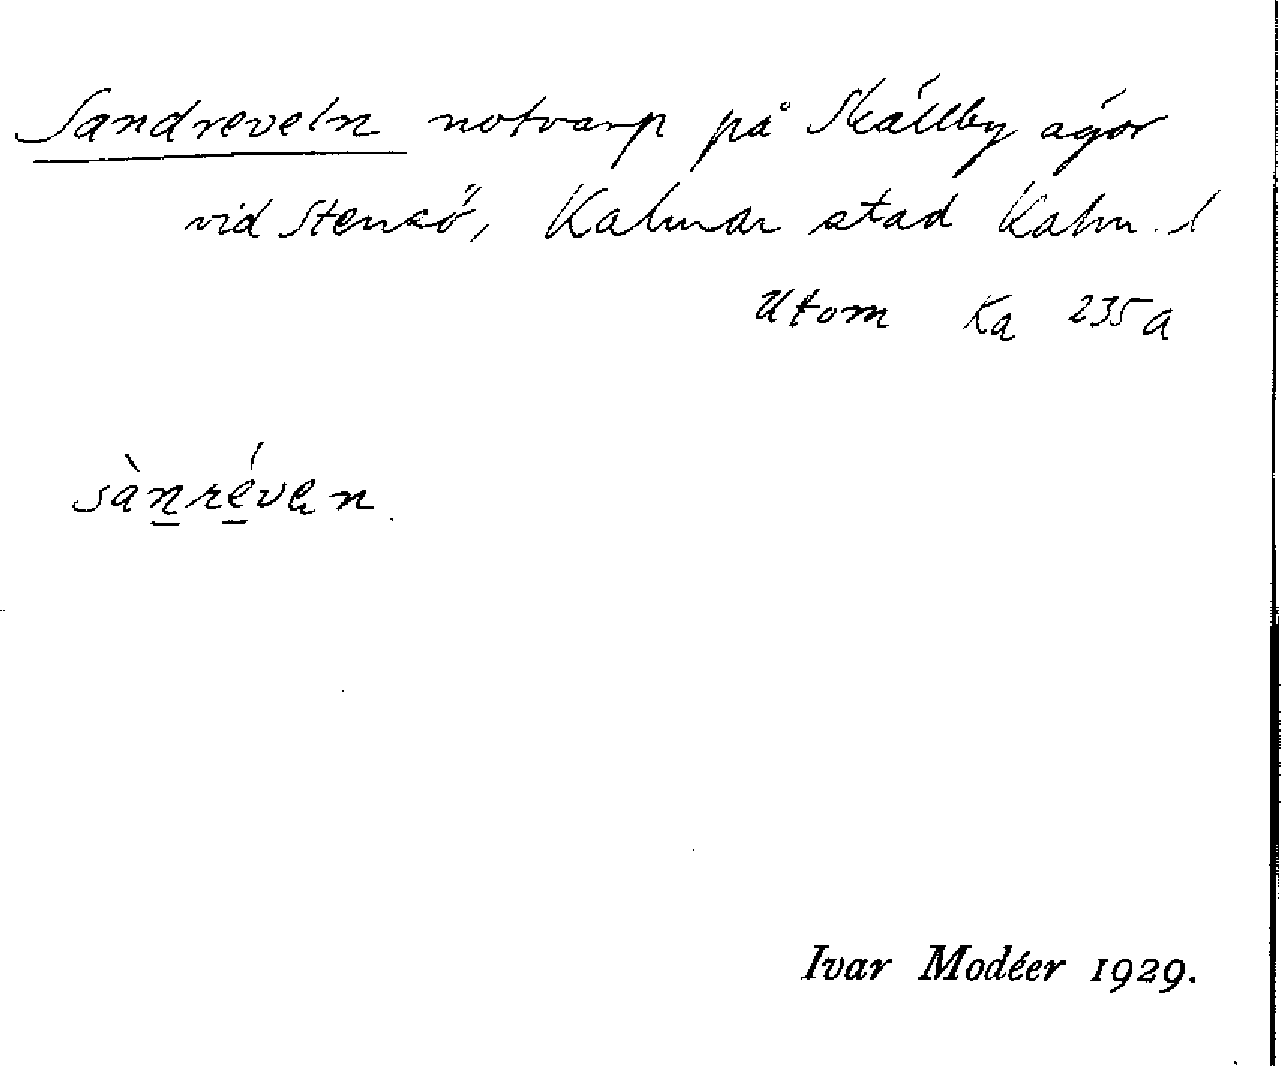 Sandreveln notvarp på Skällby ägor
vid Stensö, Kalmar stad Kalm. l
Utom Ka 235a
sànréven
Ivar Modéer 1929.